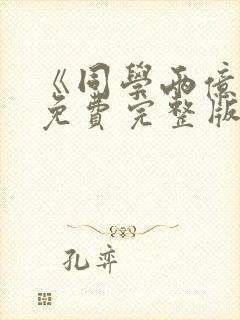 《同學兩億
免費完整版
孔弈